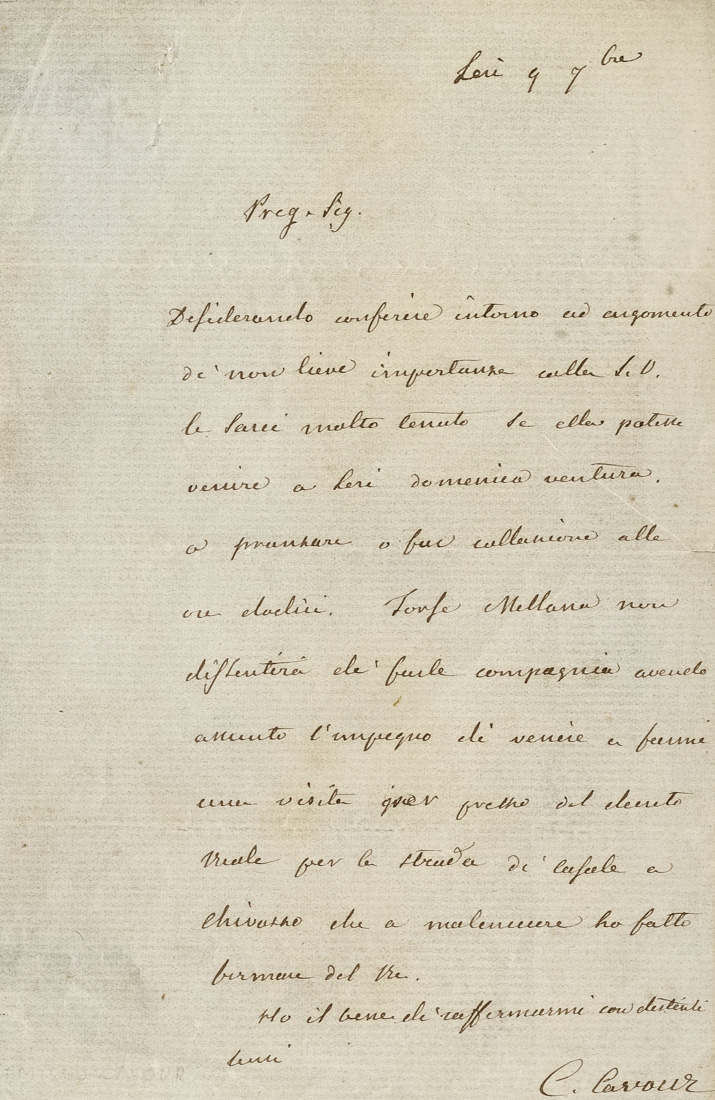 Leri 9 7bre
Preg. Sig.
Desiderando conferire intorno ad argomento
di non lieve importanza colla S. V.
le sarei molto tenuto se ella potesse
venire a Leri domenica ventura,
a pranzare o far collazione alle
ore dodici. Forse Mellana non
dissentirà di farle compagnia avendo
assunto l'impegno di venire a farmi
una visita per prezzo del decreto
reale per la strada di Casale a
Chivasso che a malincuore ho fatto
firmare del Re.
Ho il bene di raffermarmi con distinti
C. Cavour